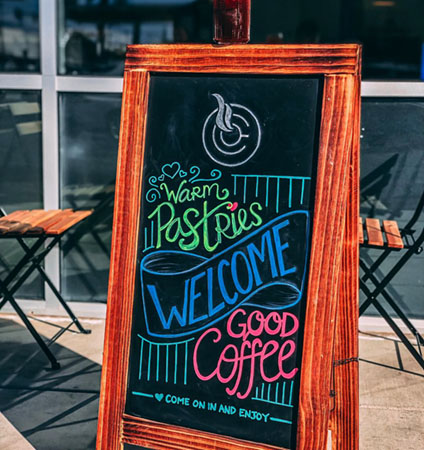 Warm
Pastries
WELCOME
GOOD
Coffee
COME ON IN AND ENJOY